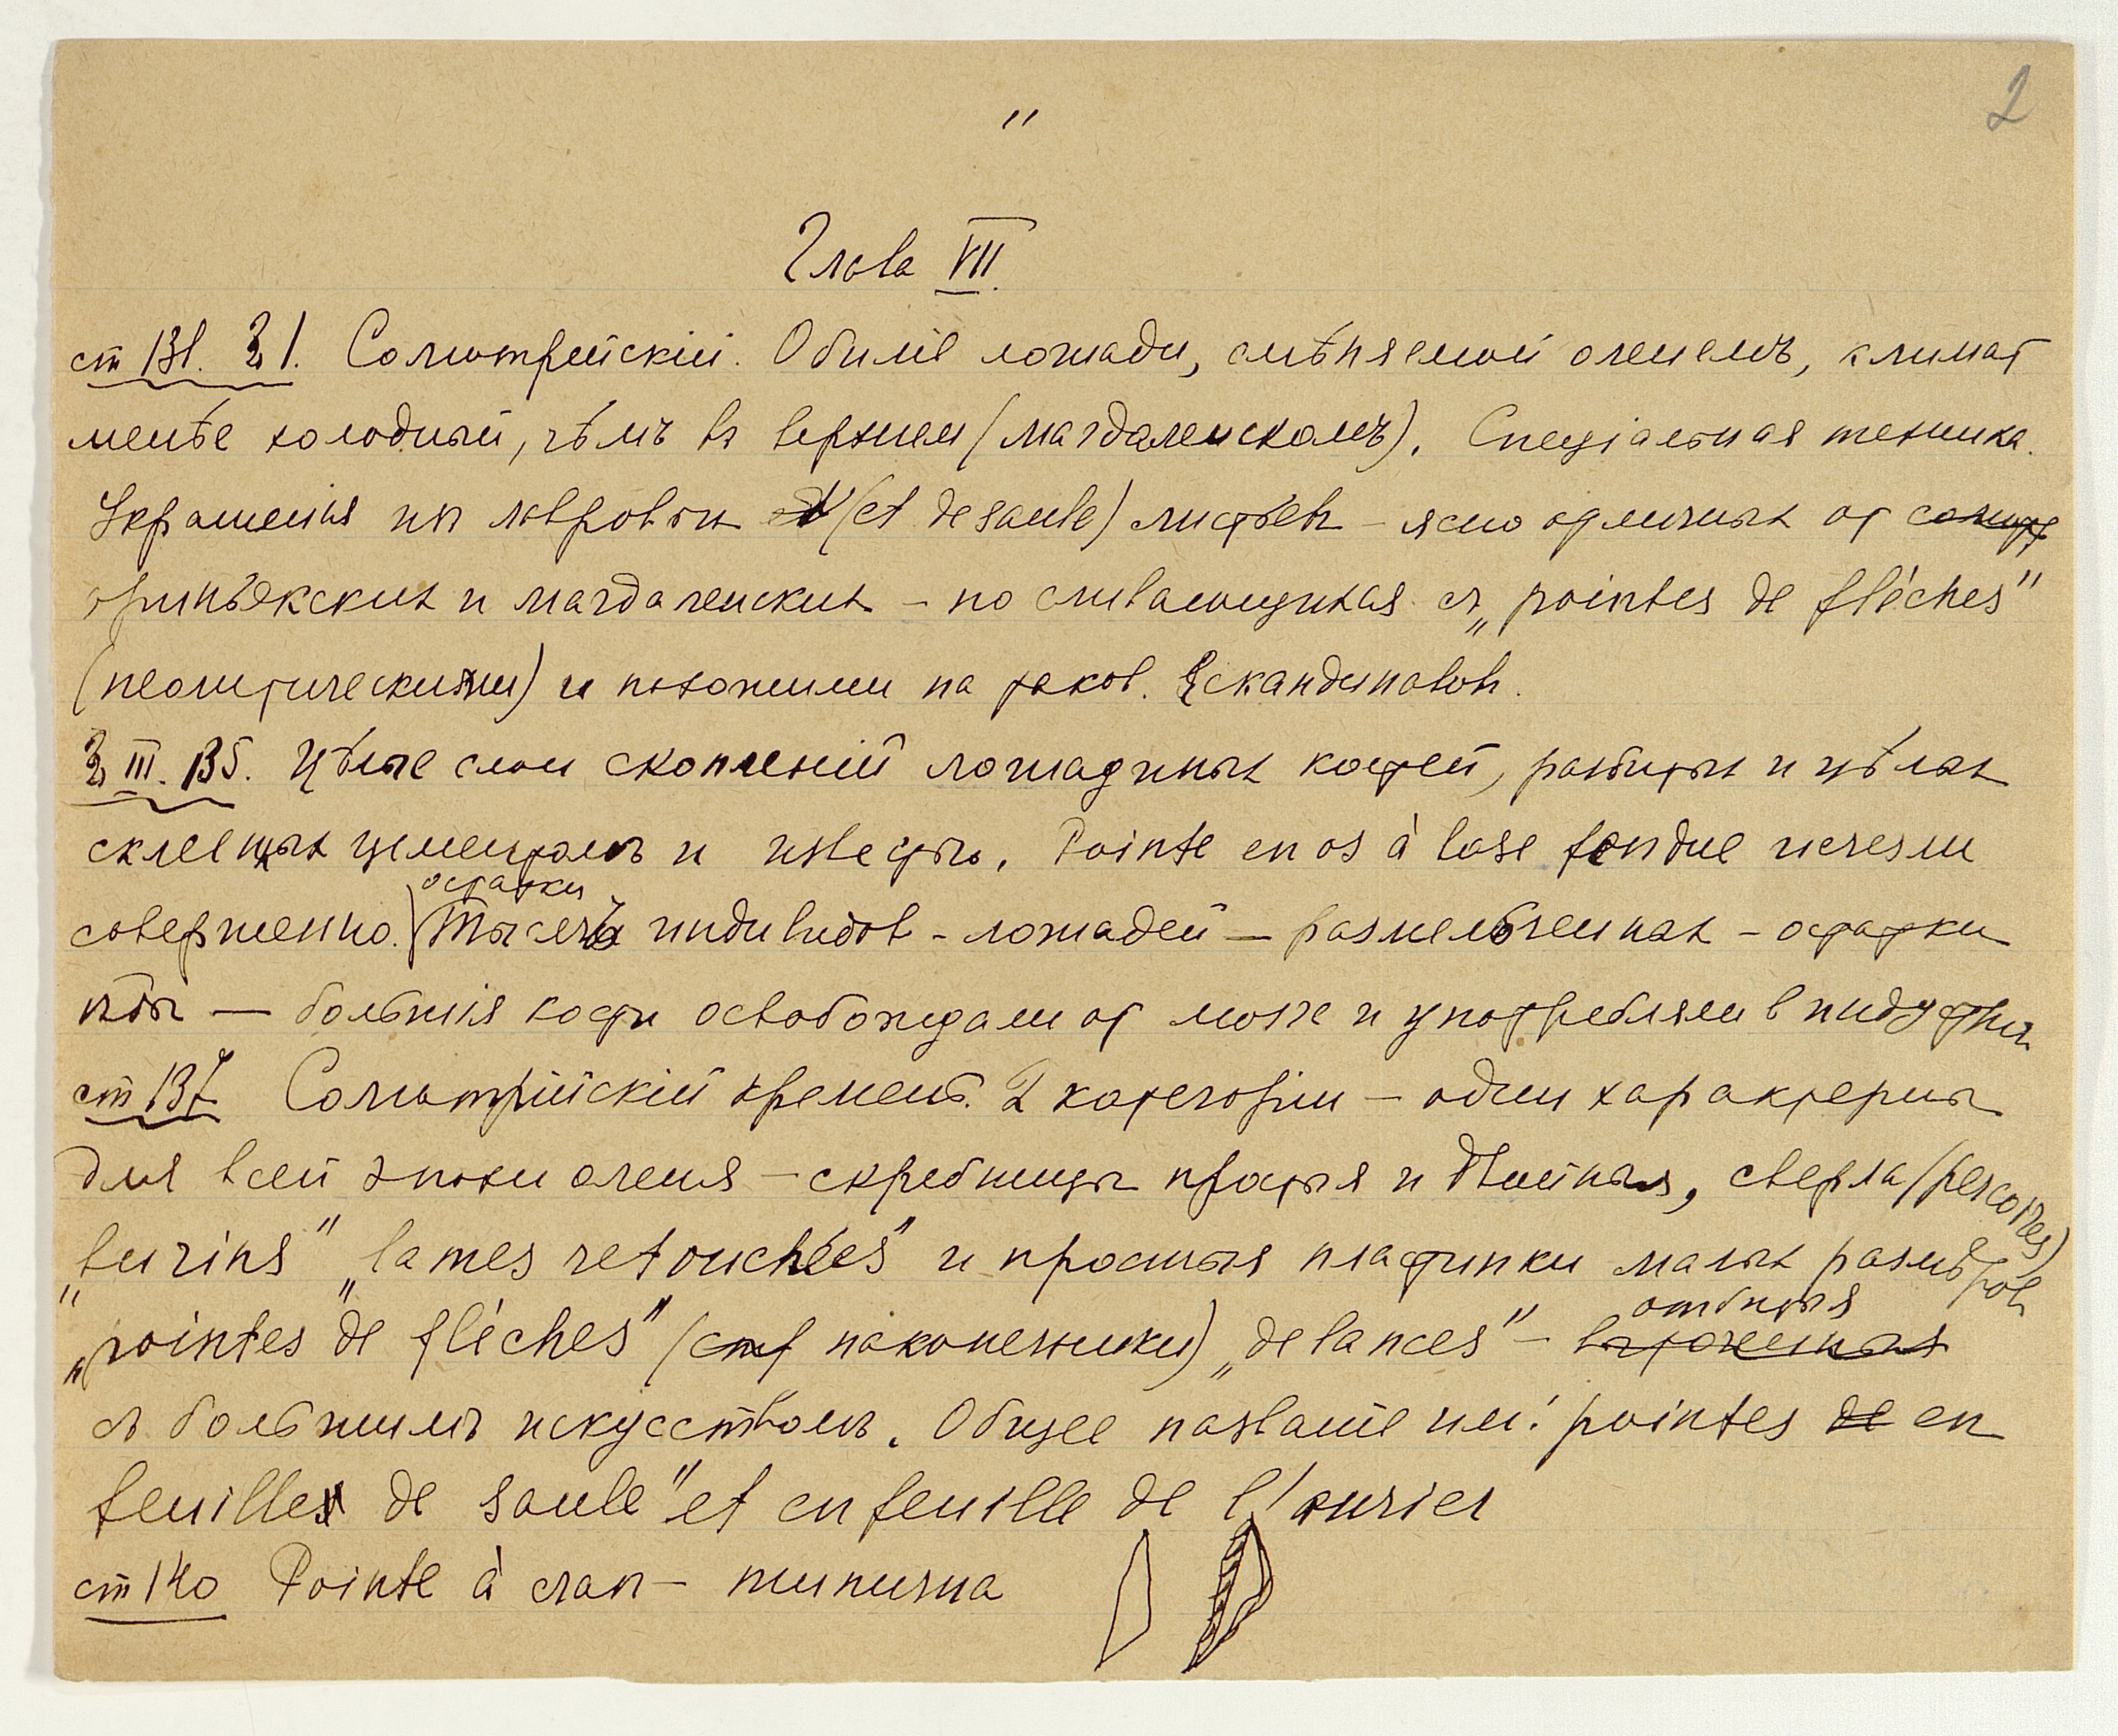 2
"
Глава VII.
ст 131. § 1. Солютрейскiй. Обилiе лошади, смѣняемой оленемъ, климат
менѣе холодный, чѣмъ въ верхнем (магдаленскомъ). Спецiальная техника.
Украшенiя из лавровых (et de saule) листьев – ясно отличных от
ориньякских и магдаленских – но сливающихся с „pointes de flèches"
(неолитическими) и похожими на таков. скандинавов.
§ III. 135. Цѣлые слои скопленiй лошадиных костей, разбитых и цѣлых
склеенных цементомъ и известью. Pointe en os à base fendue исчезли
совершенно. остатки Тысячъ индивидов – лошадей – размельченных – остатки
– большiя кости освобождали от мозга и употребляли в индустрiи
ст 137 Солютрiйскiй кремень. 2 категорiи – одни характерны
для всей эпохи оленя – скребницы простыя и двойныя, сверла (perçoires)
„burins" „lames retouchées" и простыя пластинки малых размѣров
„pointes de flèches" (наконечники) „de lances" – отбитыя
съ большимъ искусствомъ. Общее названiе им: pointes en
feuille de saule" et en feuille de l'aurier
ст 140 Pointe à cran – типична